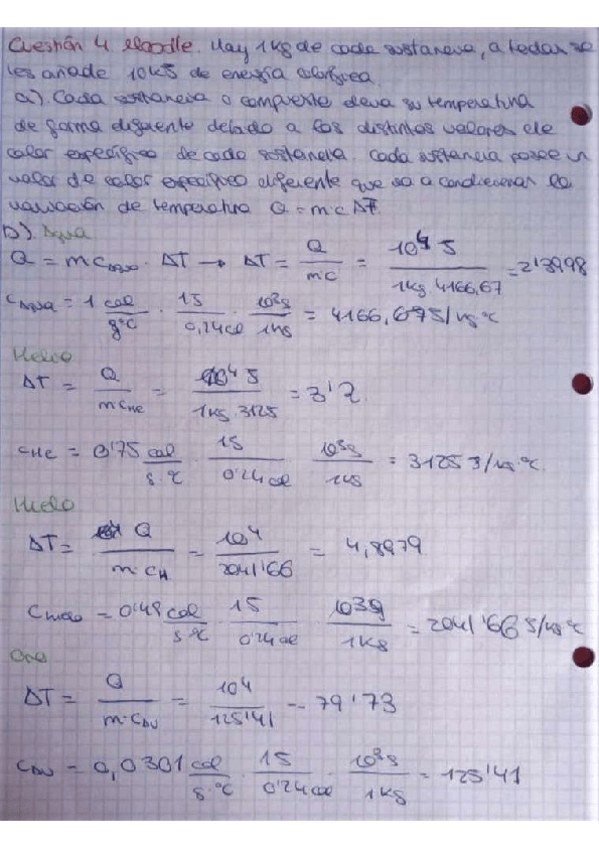 Cuestión 4 Moodle. Hay 1kg de cada sustancia, a todas se
les añade 10kJ de energía calorífica.
a). Cada sustancia o compuesto eleva su temperatura
de forma diferente debido a los distintos valores de
calor específico de cada sustancia. Cada sustancia posee un
valor de calor específico diferente que va a condicionar la
variación de temperatura Q = m·c·ΔT.
b). Agua
Q = m c_agua · ΔT → ΔT = Q / m·c = 10^4 J / 1kg · 4166,67 = 2'3998
C_Agua = 1 cal / g°C · 1J / 0,24cal · 10^3g / 1kg = 4166,67J/kg·°C
Helio
ΔT = Q / m c_He = 10^4 J / 1kg · 3125 = 3'2
c_He = 0'75 cal / g·°C · 1J / 0'24cal · 10^3g / 1kg = 3125 J/kg·°C.
Hielo
ΔT = Q / m·c_H = 10^4 / 2041'66 = 4,8979
C_hielo = 0'49 cal / g°C · 1J / 0'24cal · 10^3g / 1kg = 2041'66 J/kg°C
Oro
ΔT = Q / m·C_Au = 10^4 / 125'41 = 79'73
C_Au = 0,0301 cal / g·°C · 1J / 0'24cal · 10^3g / 1kg = 125'41